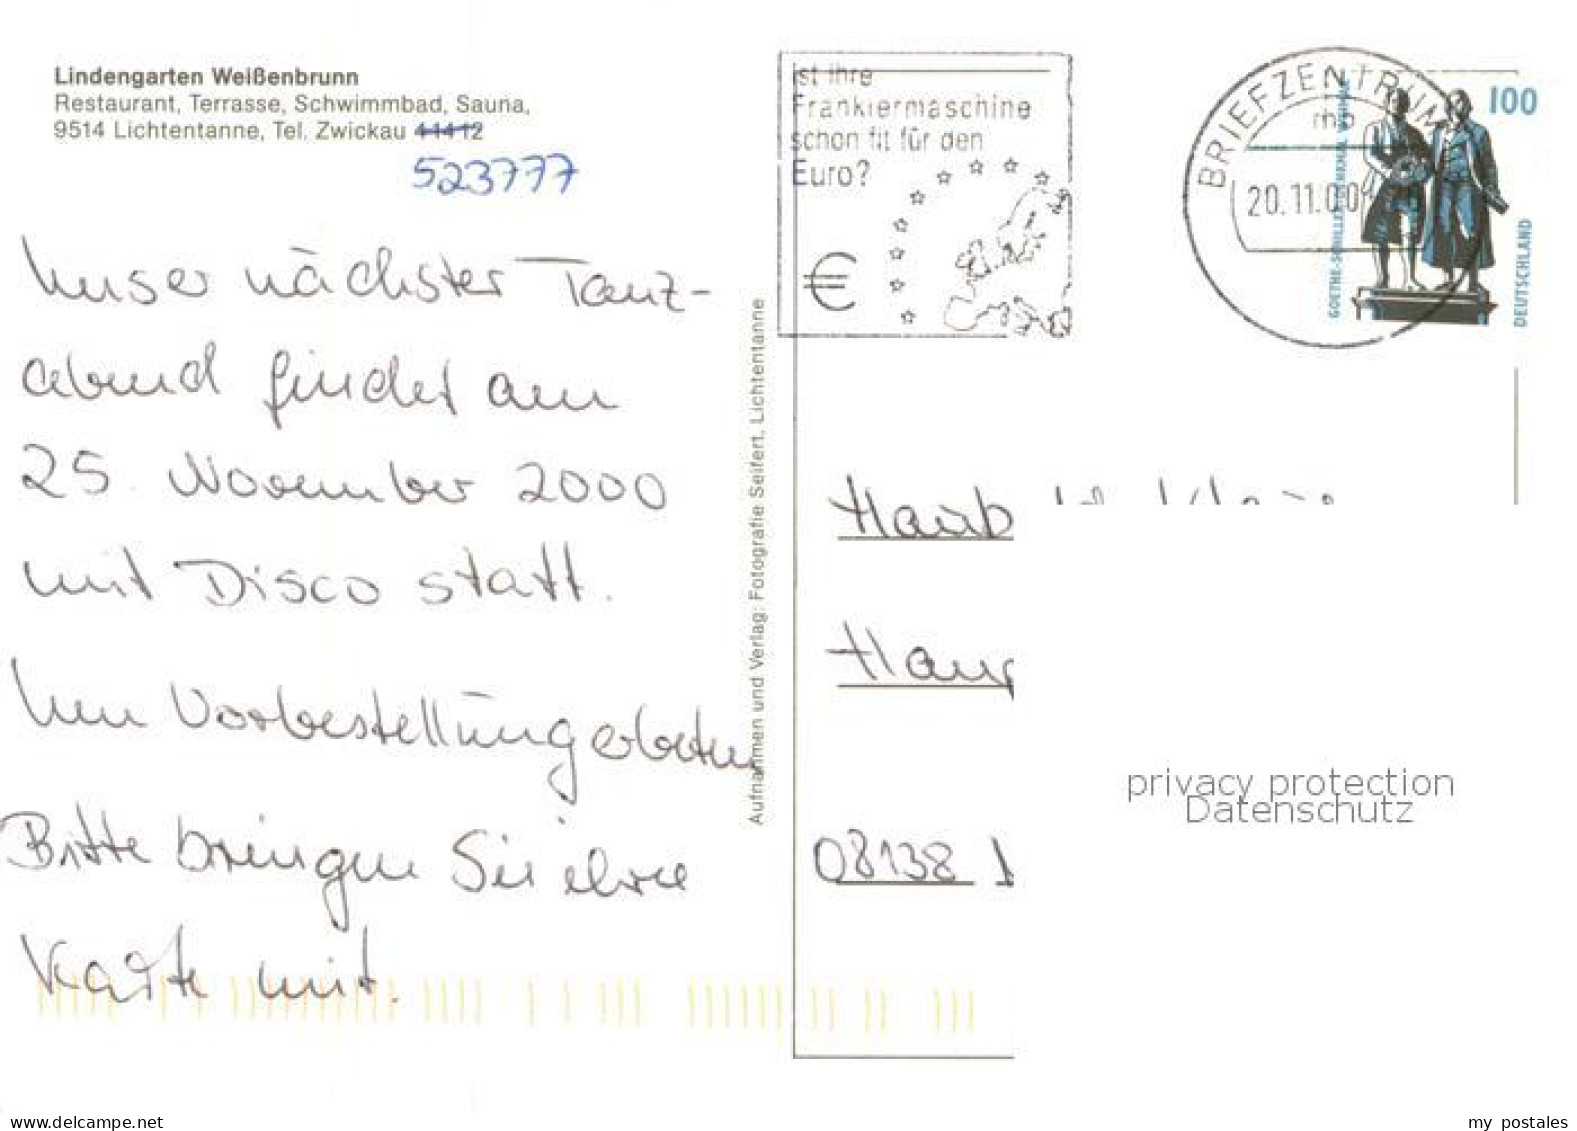 Lindengarten Weißenbrunn
Restaurant, Terrasse, Schwimmbad, Sauna,
9514 Lichtentanne, Tel. Zwickau 41412
523777
Unser nächster Tanz-
abend findet am
25. November 2000
mit Disco statt.
Um Vorbestellung erbeten
Bitte bringen Sie ihre
Karte mit.
Aufnahmen und Verlag: Fotografie Seifert, Lichtentanne
Ist Ihre
Frankiermaschine
schon fit für den
Euro?
€
BRIEFZENTRUM
20.11.00
100
GOETHE-SCHILLER-DENKMAL WEIMAR
DEUTSCHLAND
Haub
Haup
08138
privacy protection
Datenschutz
www.delcampe.net
my_postales